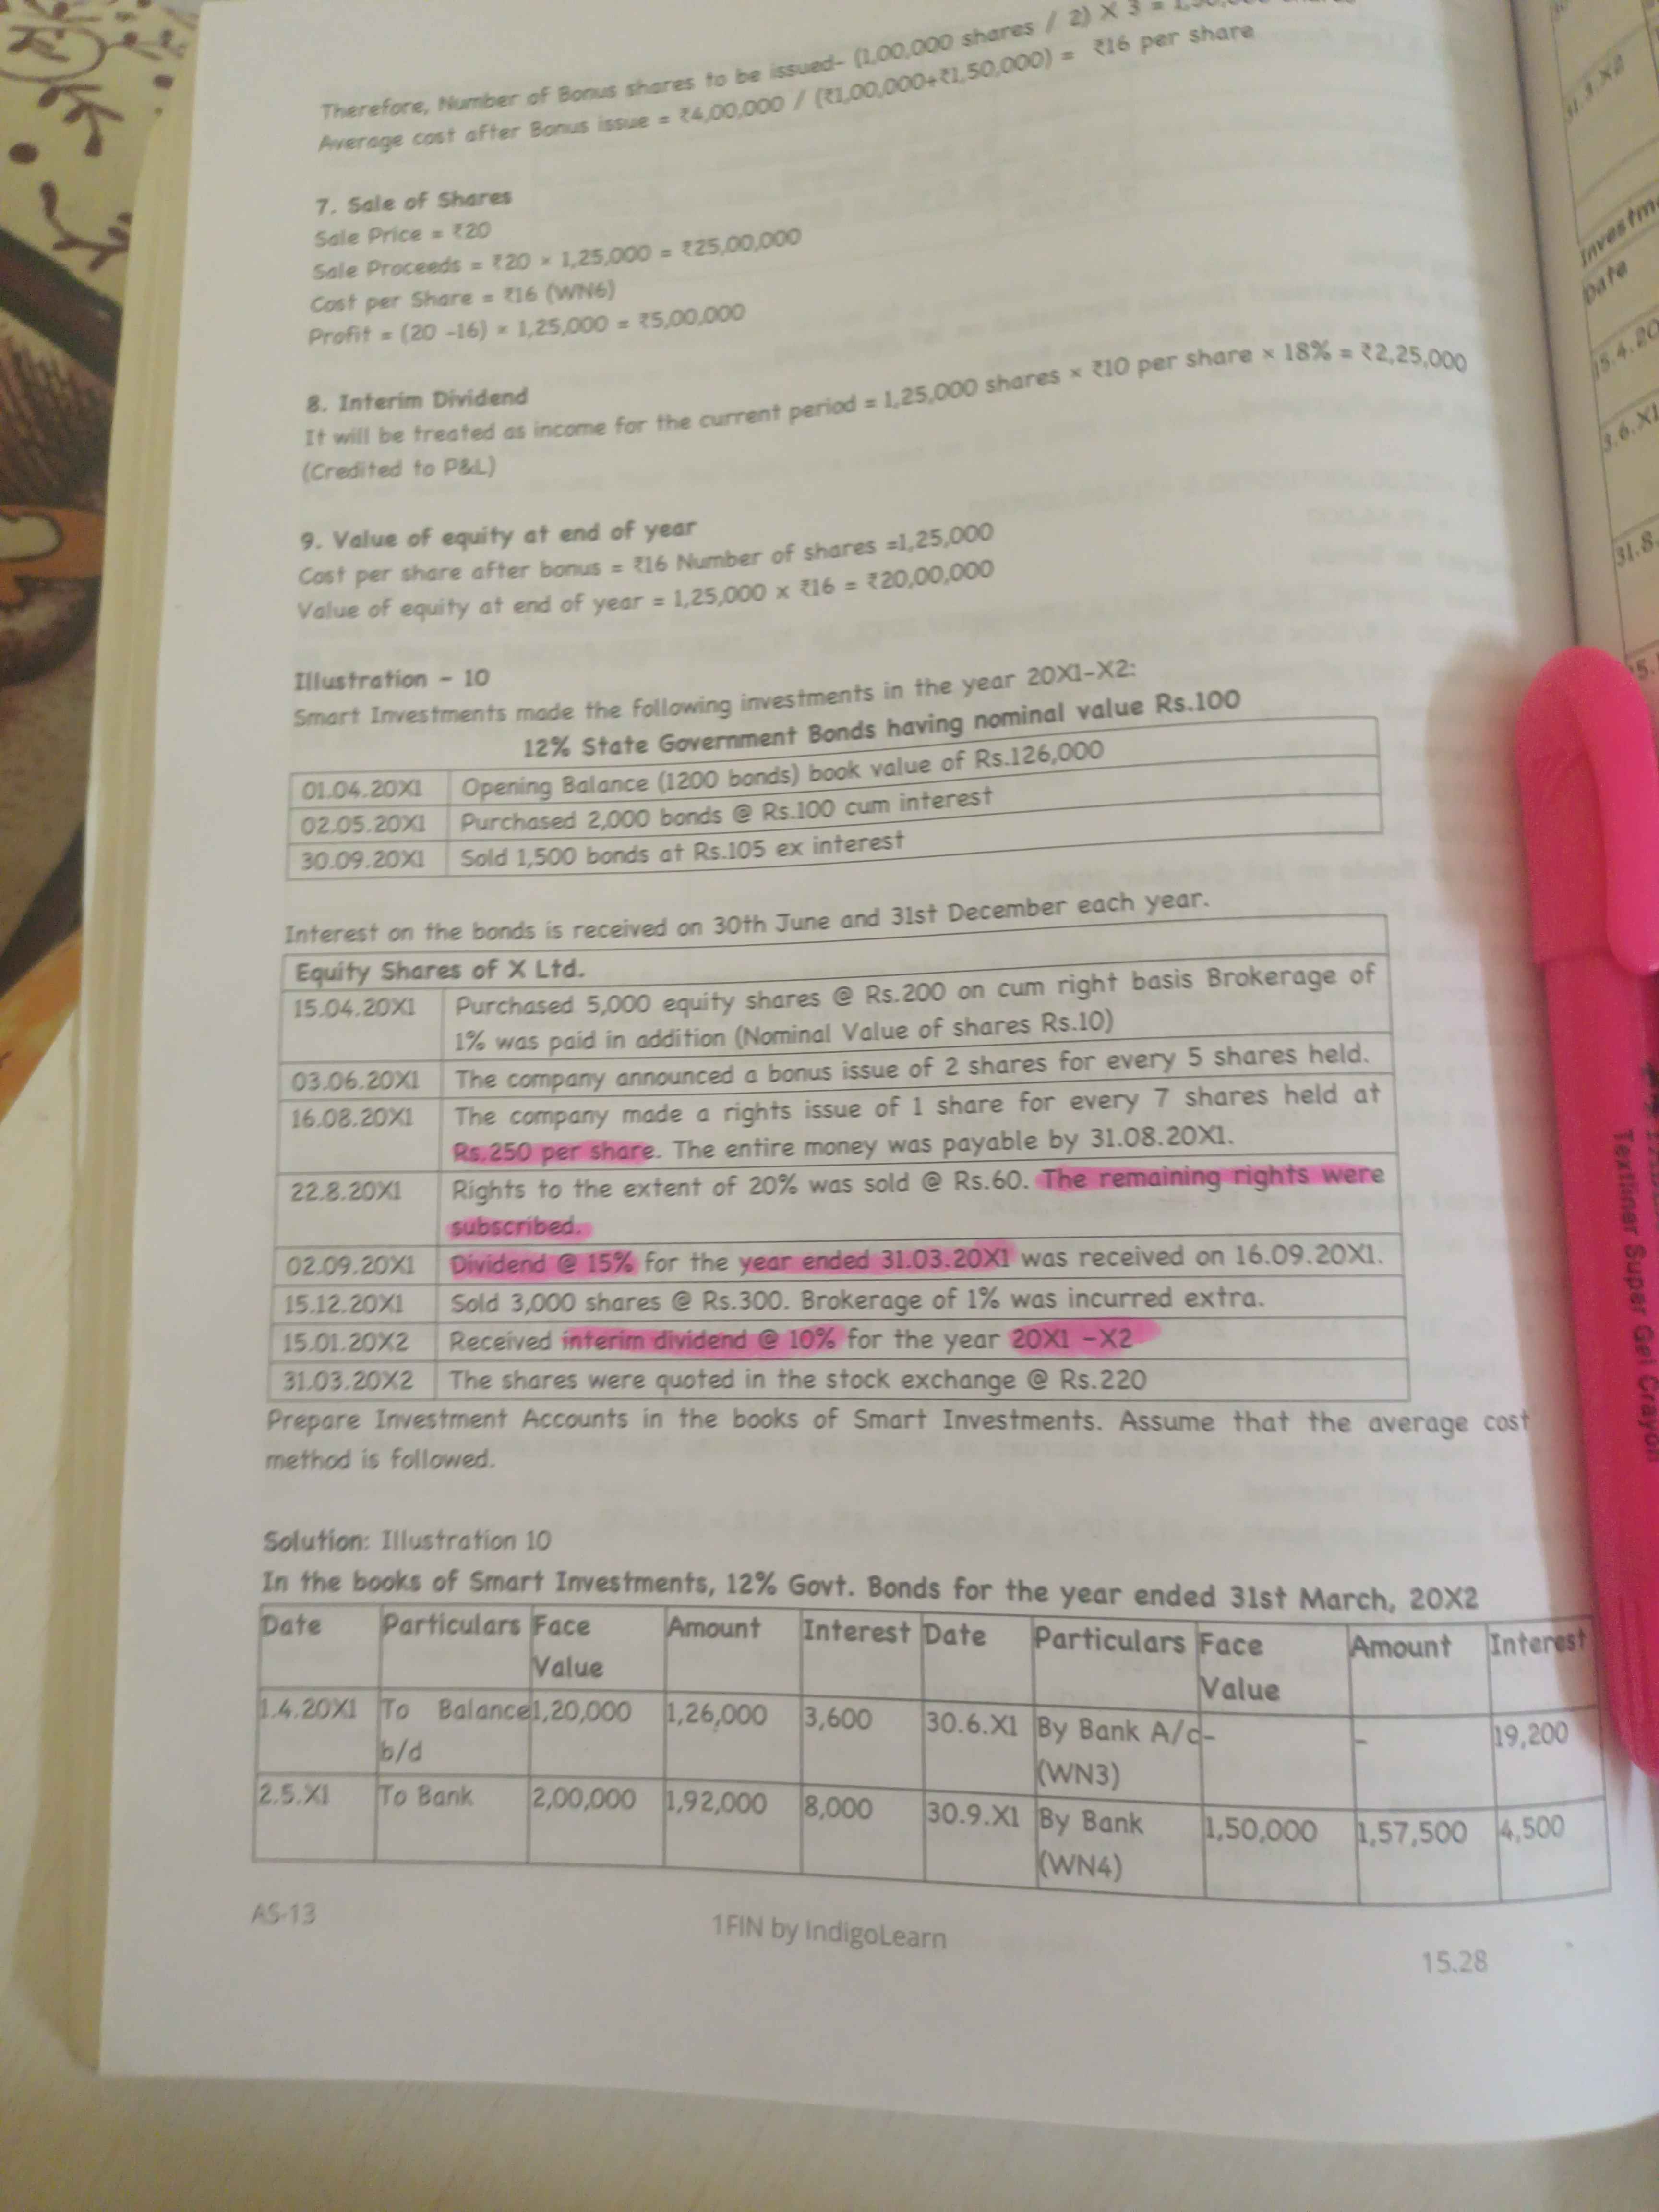 Therefore, Number of Bonus shares to be issued- (1,00,000 shares / 2) X 3 =
Average cost after Bonus issue = ₹4,00,000 / (₹1,00,000+₹1,50,000) = ₹16 per share
7. Sale of Shares
Sale Price = ₹20
Sale Proceeds = ₹20 × 1,25,000 = ₹25,00,000
Cost per Share = ₹16 (WN6)
Profit = (20 -16) × 1,25,000 = ₹5,00,000
8. Interim Dividend
It will be treated as income for the current period = 1,25,000 shares × ₹10 per share × 18% = ₹2,25,000
(Credited to P&L)
9. Value of equity at end of year
Cost per share after bonus = ₹16 Number of shares =1,25,000
Value of equity at end of year = 1,25,000 x ₹16 = ₹20,00,000
Illustration - 10
Smart Investments made the following investments in the year 20X1-X2:
12% State Government Bonds having nominal value Rs.100
01.04.20X1 Opening Balance (1200 bonds) book value of Rs.126,000
02.05.20X1 Purchased 2,000 bonds @ Rs.100 cum interest
30.09.20X1 Sold 1,500 bonds at Rs.105 ex interest
Interest on the bonds is received on 30th June and 31st December each year.
Equity Shares of X Ltd.
15.04.20X1 Purchased 5,000 equity shares @ Rs.200 on cum right basis Brokerage of
1% was paid in addition (Nominal Value of shares Rs.10)
03.06.20X1 The company announced a bonus issue of 2 shares for every 5 shares held.
16.08.20X1 The company made a rights issue of 1 share for every 7 shares held at
Rs.250 per share. The entire money was payable by 31.08.20X1.
22.8.20X1 Rights to the extent of 20% was sold @ Rs.60. The remaining rights were
subscribed.
02.09.20X1 Dividend @ 15% for the year ended 31.03.20X1 was received on 16.09.20X1.
15.12.20X1 Sold 3,000 shares @ Rs.300. Brokerage of 1% was incurred extra.
15.01.20X2 Received interim dividend @ 10% for the year 20X1 -X2
31.03.20X2 The shares were quoted in the stock exchange @ Rs.220
Prepare Investment Accounts in the books of Smart Investments. Assume that the average cost
method is followed.
Solution: Illustration 10
In the books of Smart Investments, 12% Govt. Bonds for the year ended 31st March, 20X2
Date Particulars Face Amount Interest Date Particulars Face Amount Interest
Value Value
1.4.20X1 To Balance 1,20,000 1,26,000 3,600 30.6.X1 By Bank A/c - - 19,200
b/d (WN3)
2.5.X1 To Bank 2,00,000 1,92,000 8,000 30.9.X1 By Bank 1,50,000 1,57,500 4,500
(WN4)
AS-13
1FIN by IndigoLearn
15.28
31.3.X2
Date
31.8.
Textliner Super Gel Crayon